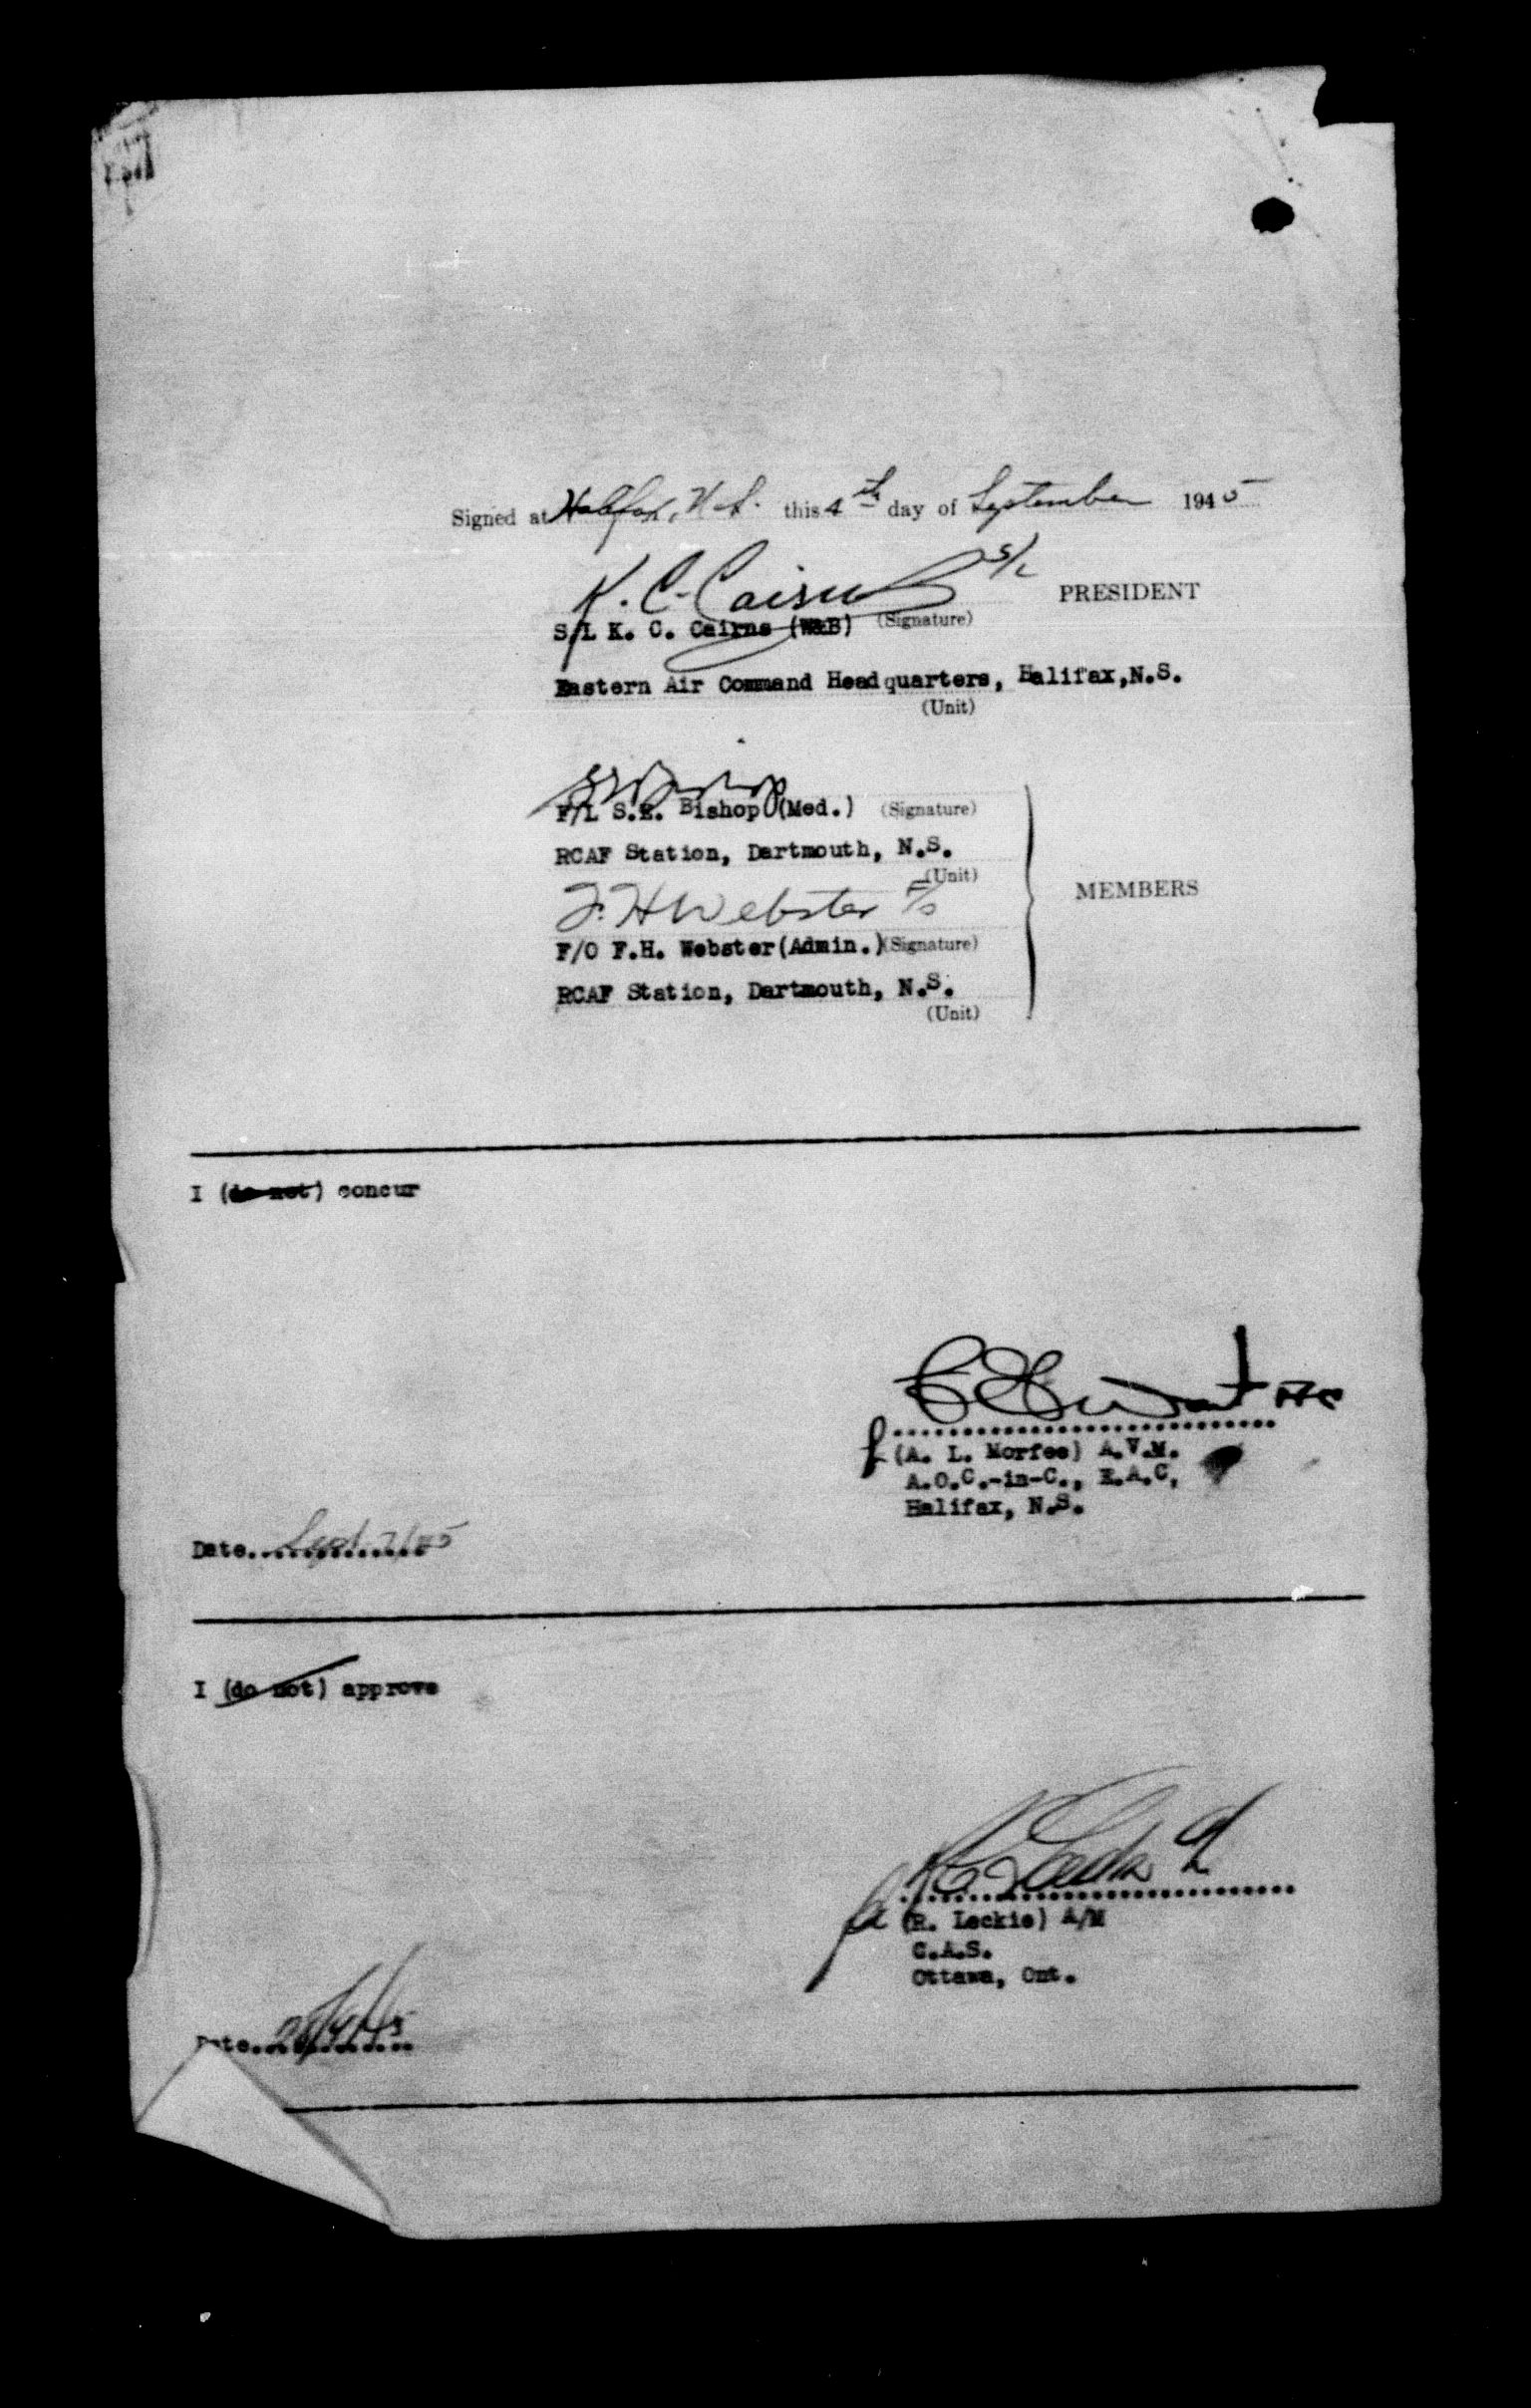 Signed at Halifax, N.S. this 4th day of September 1945
K. C. Cairns S/L PRESIDENT
S/L K. C. Cairns (W&B) (Signature)
Eastern Air Command Headquarters, Halifax,N.S.
(Unit)
F/L S.E. Bishop (Med.) (Signature)
RCAF Station, Dartmouth, N.S.
(Unit)
MEMBERS
F.H Webster F/O
F/O F.H. Webster(Admin.)(Signature)
RCAF Station, Dartmouth, N.S.
(Unit)
I (do not) concur
(A. L. Morfee) A.V.M.
A.O.C.-in-C., E.A.C,
Halifax, N.S.
Date. Sept. 7/45
I (do not) approve
(R. Leckie) A/M
C.A.S.
Ottawa, Ont.
Date